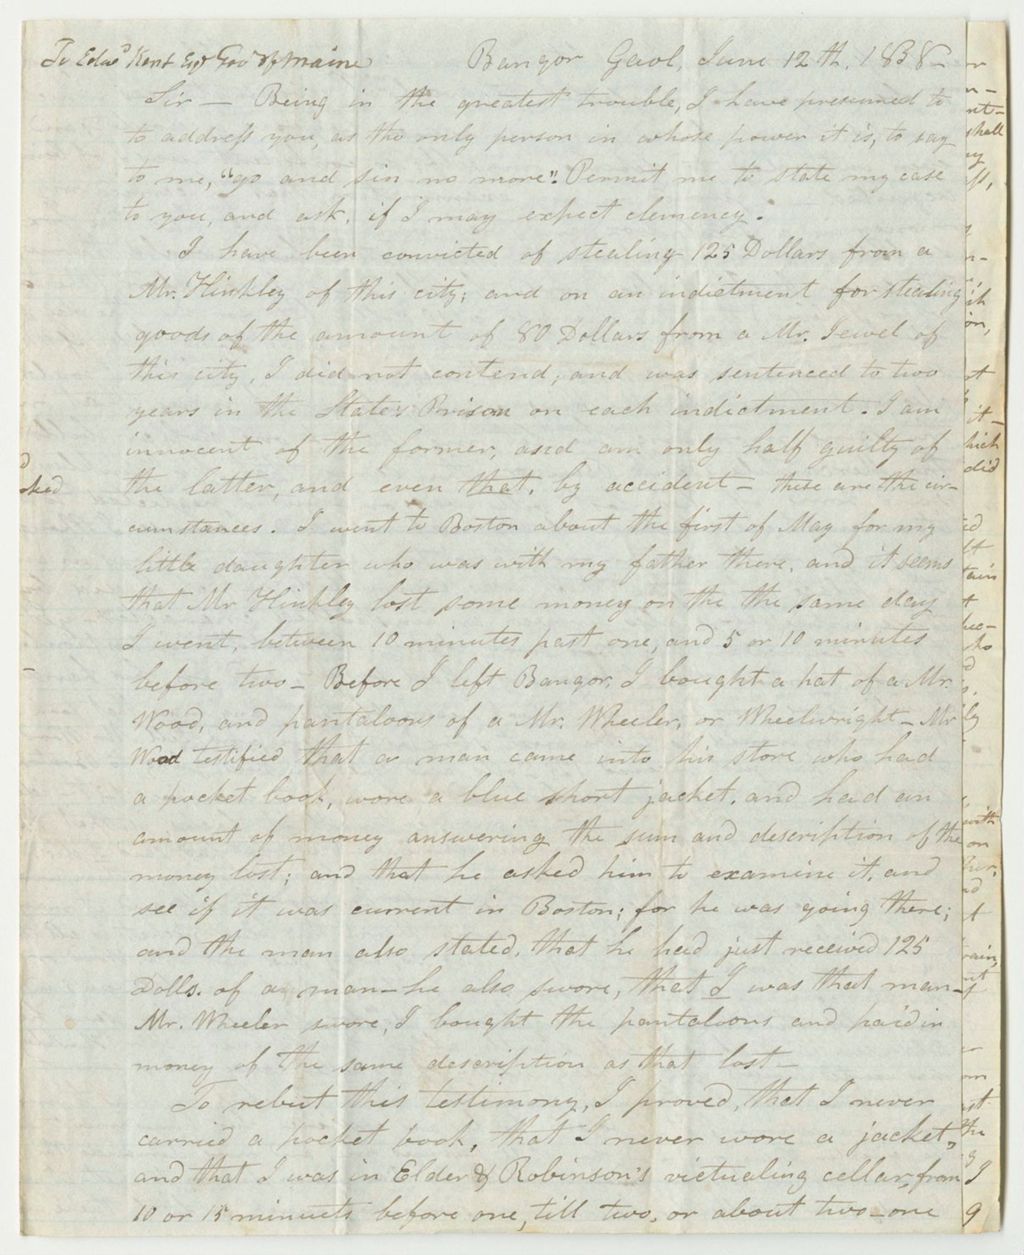 To Edwd Kent Esqr Govr of Maine Bangor Gaol, June 12th, 1838-
Sir — Being in the greatest trouble, I have presumed to
to address you, as the only person in whose power it is, to say
to me, "go and sin no more". Permit me to state my case
to you, and ask, if I may expect clemency.
I have been convicted of stealing 125 Dollars from a
Mr. Hinkley of this city; and on an indictment for stealing
goods of the amount of 80 Dollars from a Mr. Jewel of
this city, I did not contend, and was sentenced to two
years in the State's Prison on each indictment. I am
innocent of the former, and am only half guilty of
the latter, and even that, by accident — these are the cir-
cumstances. I went to Boston about the first of May for my
little daughter who was with my father there, and it seems
that Mr Hinkley lost some money on the the same day
I went, between 10 minutes past one, and 5 or 10 minutes
before two — Before I left Bangor, I bought a hat of a Mr.
Wood, and pantaloons of a Mr. Wheeler, or Wheelwright — Mr
Wood testified that a man came into his store who had
a pocket book, wore a blue short jacket, and had an
amount of money answering the sum and description of the
money lost; and that he asked him to examine it, and
see if it was current in Boston; for he was going there;
and the man also stated, that he had just received 125
Dolls. of a man — he also swore, that I was that man —
Mr. Wheeler swore, I bought the pantaloons and paid in
money of the same description as that lost —
To rebut this testimony, I proved, that I never
carried a pocket book, that I never wore a jacket,
and that I was in Elder & Robinson's victualing cellar, from
10 or 15 minuets before one, till two, or about two — one